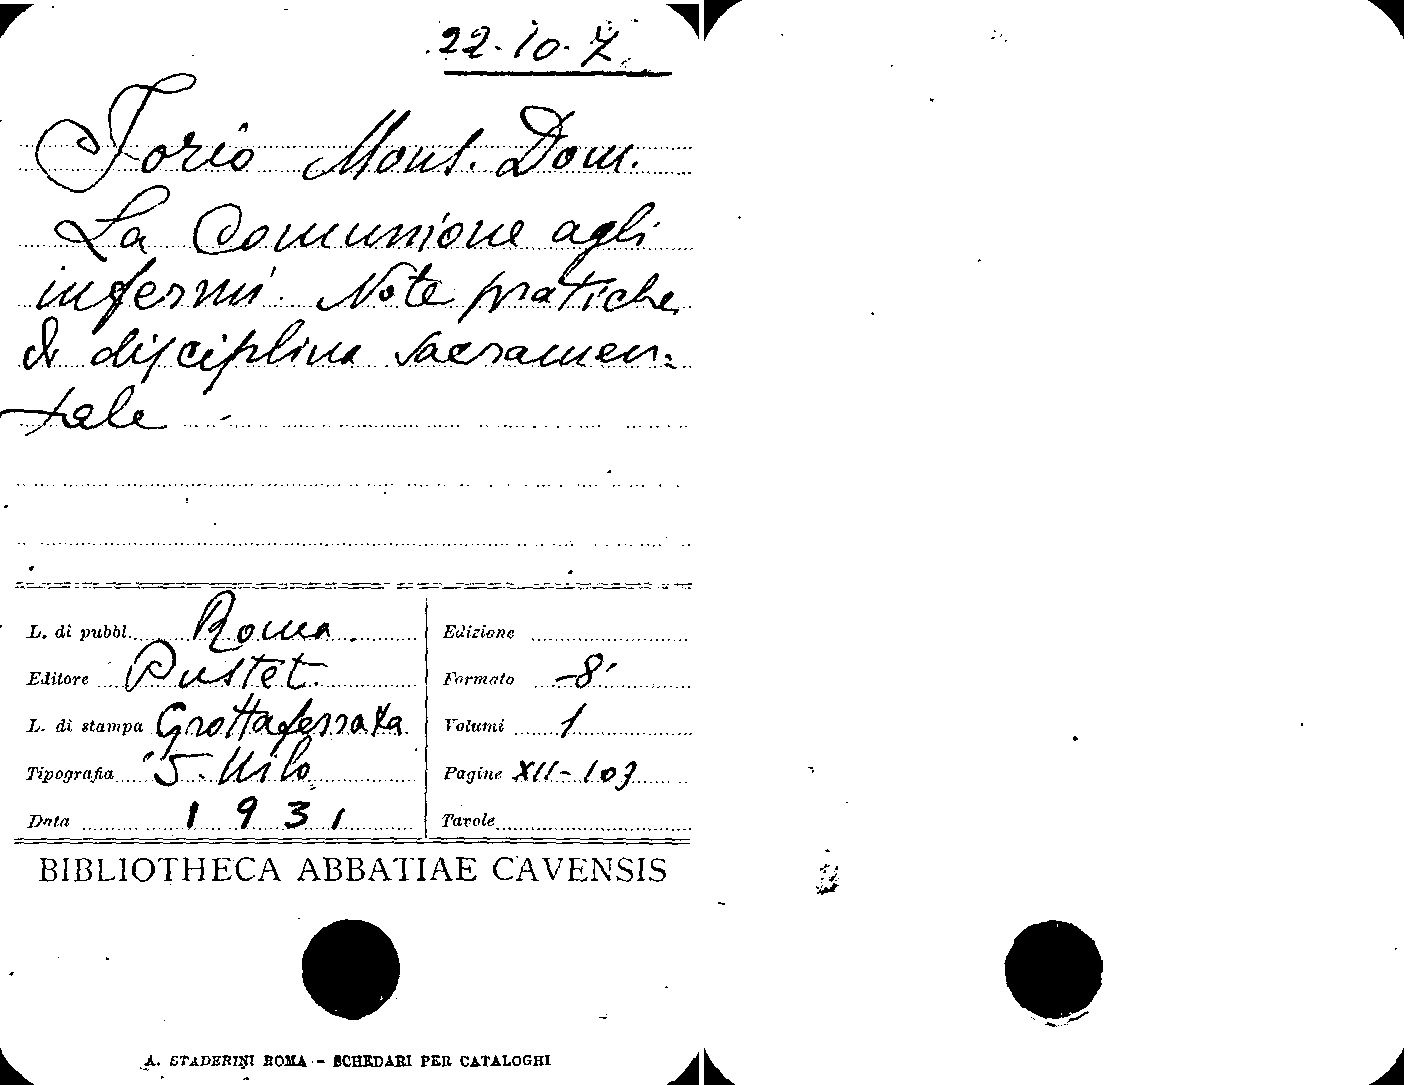 22-10-7
Iorio Mons. Dom.
La Comunione agli
infermi. Note pratiche
di disciplina sacramen=
tale -
L. di pubbl. Roma.
Editore Pustet.
L. di stampa Grottaferrata
Tipografia S. Nilo
Data 1931
Edizione
Formato -8°
Volumi 1
Pagine XII-103
Tavole
BIBLIOTHECA ABBATIAE CAVENSIS
A. STADERINI ROMA - SCHEDARI PER CATALOGHI